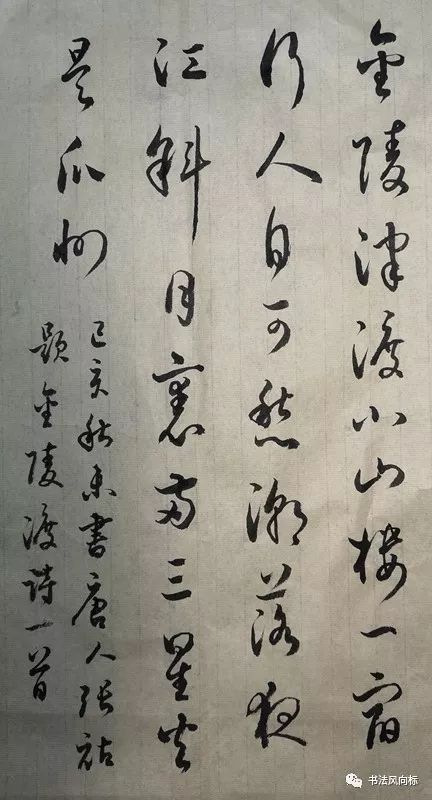 金陵津渡小山楼一宿
行人自可愁潮落夜
江斜月里两三星火
是瓜州
己亥秋末书唐人张祜
题金陵渡诗一首
书法风向标